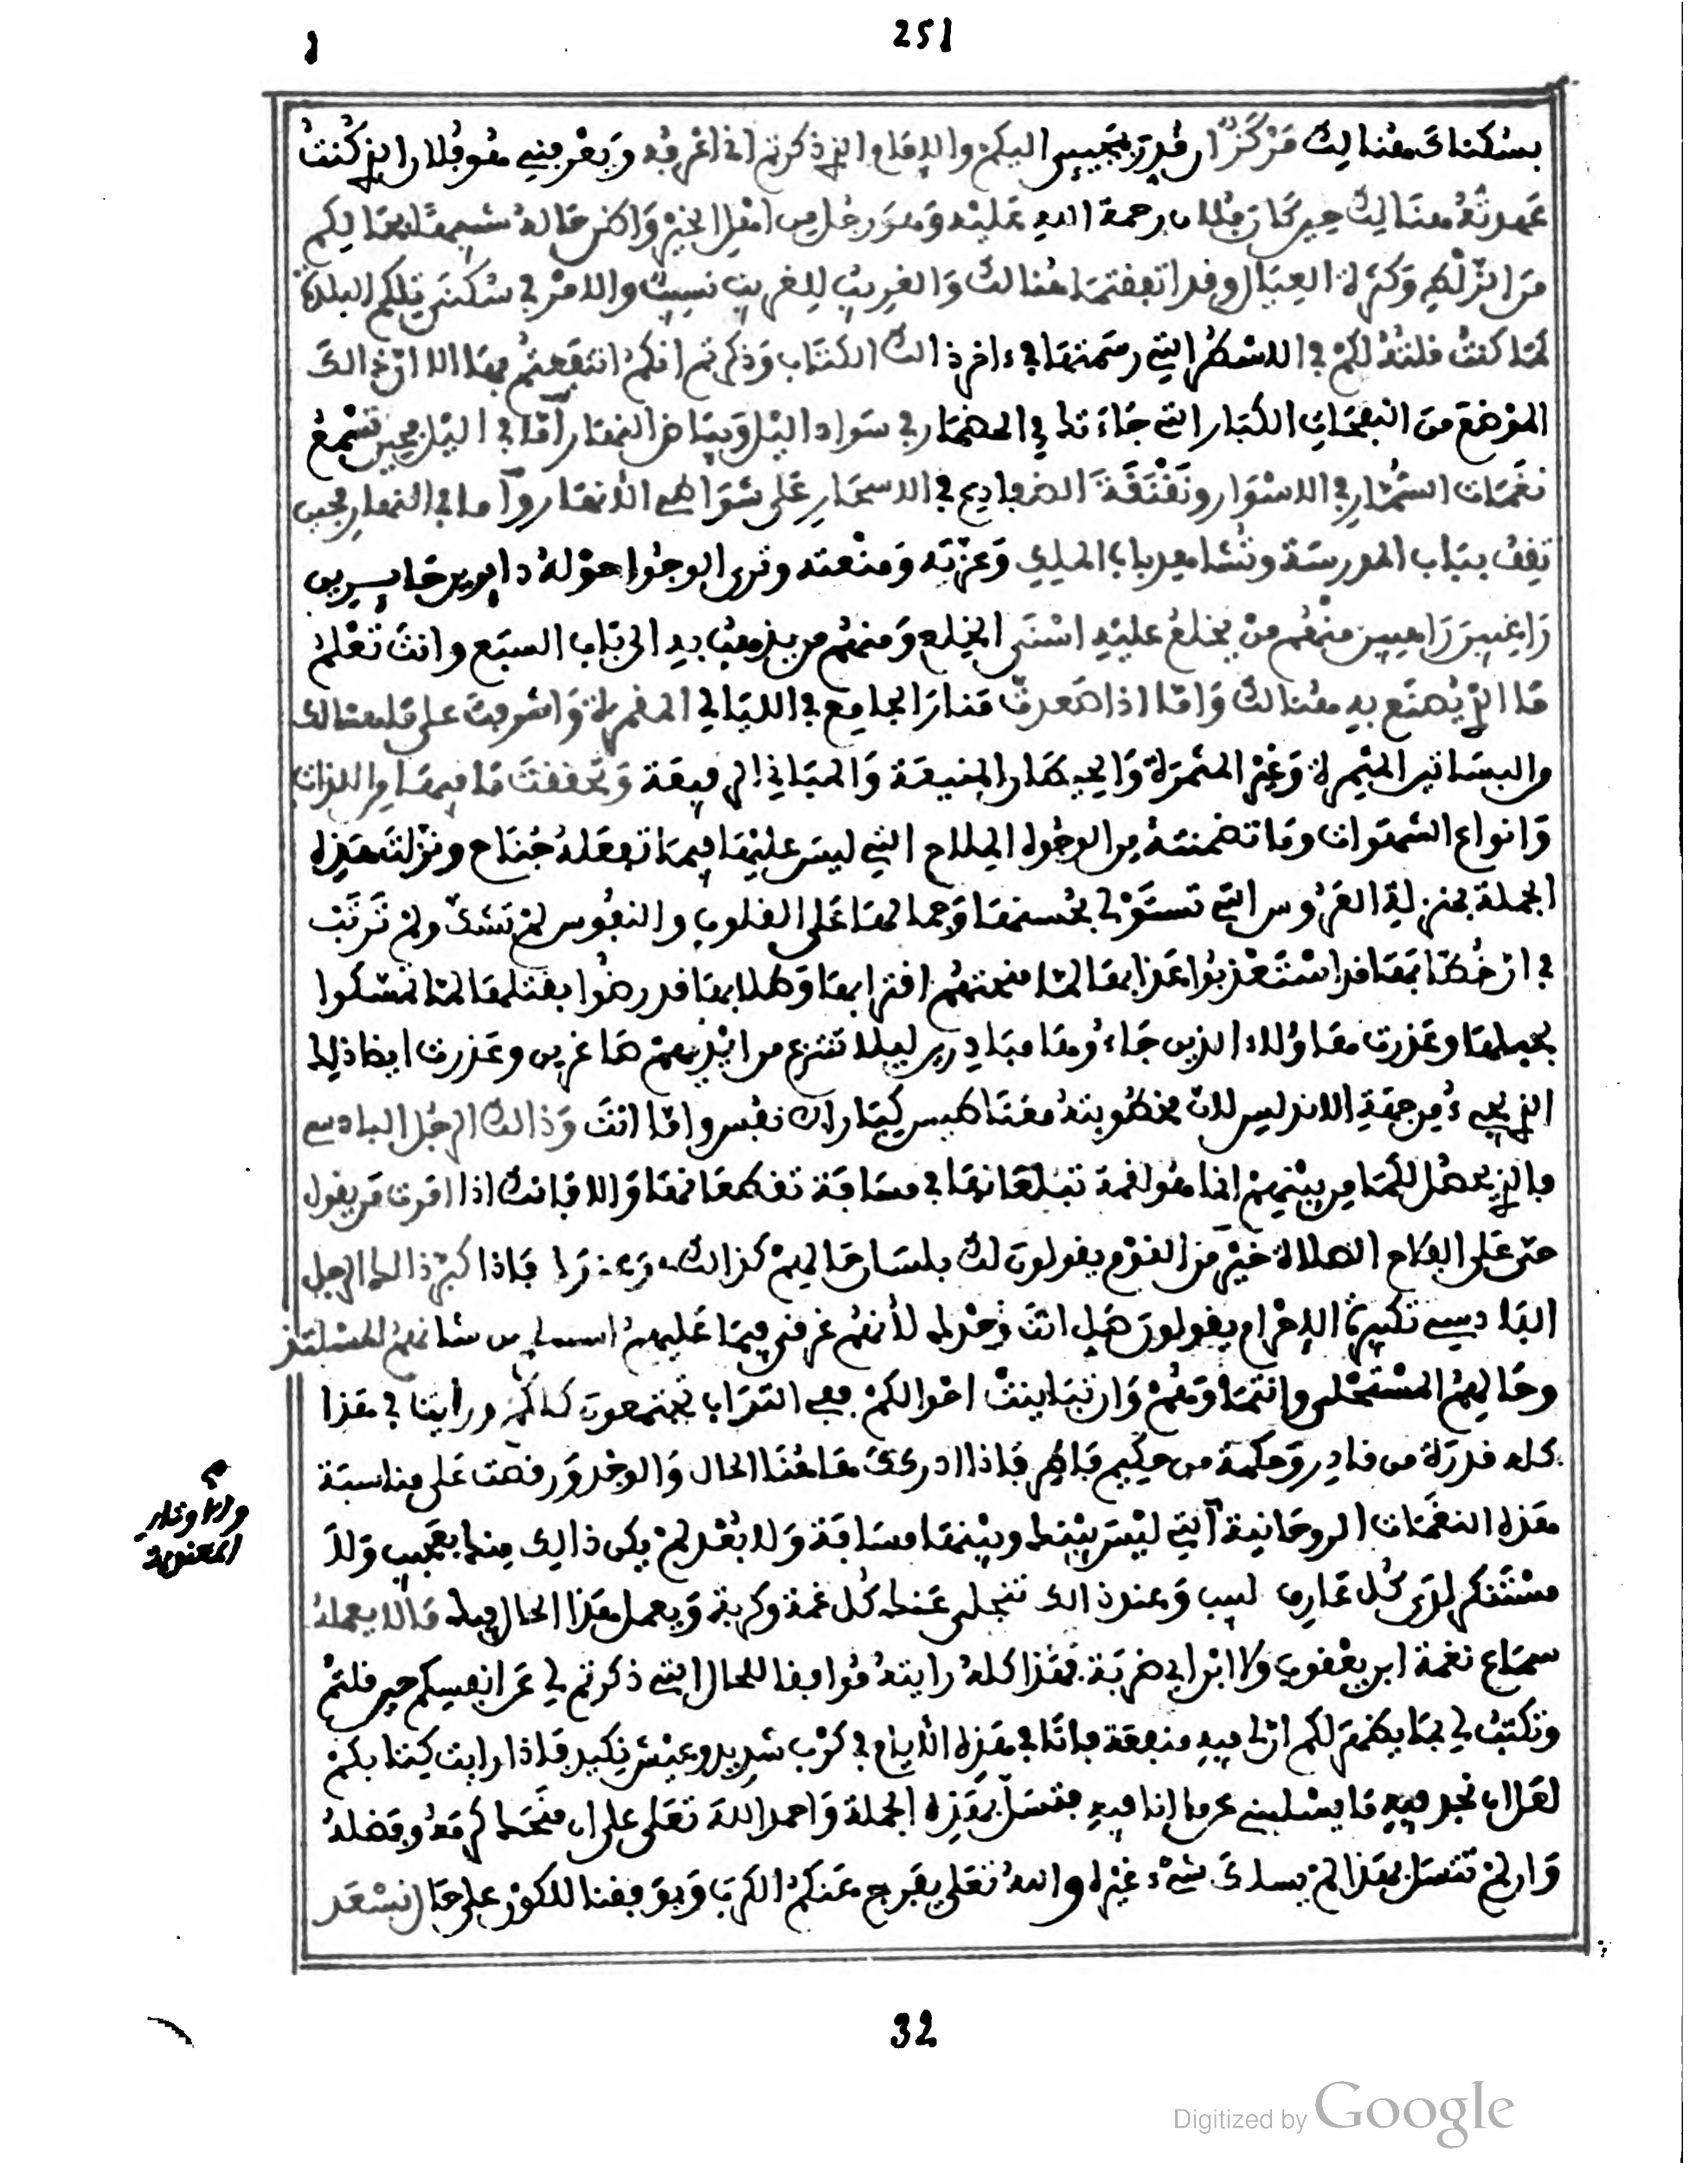 251
بسكناك هنالك مركز ان قدر بمجيبى اليكم والامام الذي ذكرتم انى اعرفه ويعرفني هو فلان الذي كنت
عهدته هنالك حين كان فلان رحمة الله عليه وهو رجل من اهل الخير ولاكن حاله شبيها بحالكم
من القلة وكثرة العيال وقد اتفقتما هنالك والغريب للغريب نسيب والامر في سكنى تلكم البلدة
كما كنت قلته لكم في الاسطر التي رسمتها في ءاخر ذالك الكتاب وذكرتم انكم انتفعتم بها الا ان ذالك
الموضع من النفحات الكبار التي جاءتك في المضمار في سواد اليل وبياض النهار أما في اليل فحين تسمع
نغمات السمار في الاسوار ونقنقة الضفاديع في الاسحار على شواطي الأنهار وأما في النهار فحين
تقف بباب المدرسة وتشاهد باب الملك وعزته ومنعته وترى الوجوا حوله دايرين حايرين
راغبين راهبين منهم من يخلع عليه اسنى الخلع ومنهم من يذهب به الى باب السبع وانت تعلم
ما الذي يصنع به هنالك واما اذا صعدت منار الجامع في الليالي المقمرة واشرفت على ما هنالك
من البساتين المثمرة وغير المثمرة والحيطان المنيعة والمباني الرفيعة وتحققت ما فيها من اللذات
وانواع الشهوات وما تضمنته من الوجوه الملاح التي ليس عليها فيما تفعله جناح ونزلت هذه
الجملة بمنزلة العروس التي تستولي بحسنها وجمالها على القلوب والنفوس لم تشك ولم ترتب
في ان خطابها قد استعذبوا عذابها لما منحتهم اقترابها وطلابها قد رضوا بقتلها لما تمسكوا
بحبلها وعذرت هاؤلاء الذين جاءوها مبادرين ليلا تنتزع من ايديهم صاغرين وعذرت ايضا ذلك
الذي يجيء من جهة الاندليس لان مخطوبته مغناطيس كيما راك نفيس واما انت وذالك الرجل البادسي
فالذي يحصل لكما من بينهم انما هو لقمة تبلعانها في مسافة تقطعانها والا فانك اذا اقرت من يقول
حي على الفلاح الصلاة خير من النوم يقولون لك بلسان حالهم كذالك فاذا كبر ذالك الرجل
البادسي تكبيرة الاحرام يقولون هل انت وحدك لأنهم غرقى فيما عليهم من شانهم المستلذ
وحالهم المستحلى وانتما وهم وان تباينت احوالكم ففي التراب تجتمعون كلكم ورأينا في هذا
كله قدرة من قادر وحكمة من حكيم فاطر فاذا ادركك هاهنا الحال والوجد ورقصت على مناسبة
هذه النغمات الروحانية التي ليس بينك وبينها مسافة ولا بعد لم يكن ذالك منك بعجيب ولا
مستنكر لدى كل عارف لبيب وعند ذالك تنجلى عنك كل غمة وكربة ويعمل هذا الحال فيك ما لا يعمله
سماع نغمة ابن يعقوب ولا ابن ابي ضربة فهذا كله رايته موافقا للحال التي ذكرتم لي عن انفسكم حين قلتم
وتكتب لي بما يظهر لكم ان لي فيه منفعة فانا في هذه الأيام في كرب شديد وعيش نكيد فاذا رايت كتابكم
لعل ان نجد فيه ما يسليني عن ما انا فيه فتسل بهذه الجملة واحمد الله تعلى على ان منحك كرمه وفضله
وان لم تتسل بهذا لم يسلك شيء غيره والله تعلى يفرج عنكم الكرب ويوفقنا للكون على حال نسعد
المعنوية
32
Digitized by Google